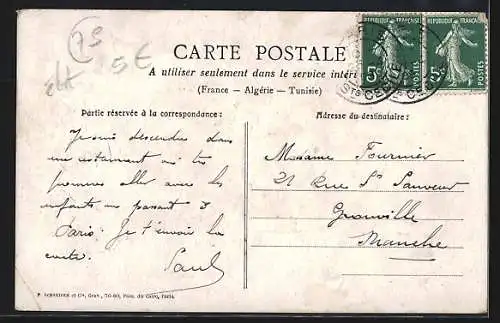 75
5€
CARTE POSTALE
A utiliser seulement dans le service intéri
(France — Algérie — Tunisie)
REPUBLIQUE FRANÇAISE
5c POSTES
REPUBLIQUE FRANÇAISE
5c POSTES
STE CECILE
Partie réservée à la correspondance :
Je vais descendre dans
un restaurant
pouvoir aller avec les
enfants en passant à
Paris. Je t'envoie la
carte.
Paul
Adresse du destinataire :
Madame Fournier
21 Rue St Sauveur
Granville
Manche